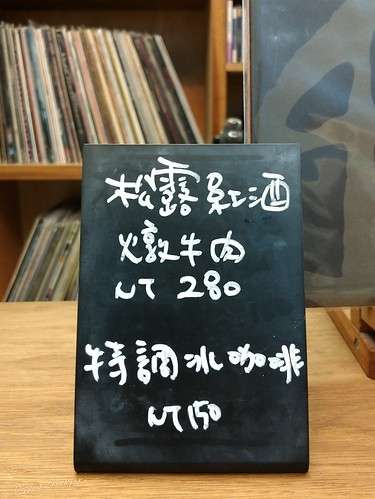 松露紅酒
燉牛肉
NT 280
特調冰咖啡
NT150